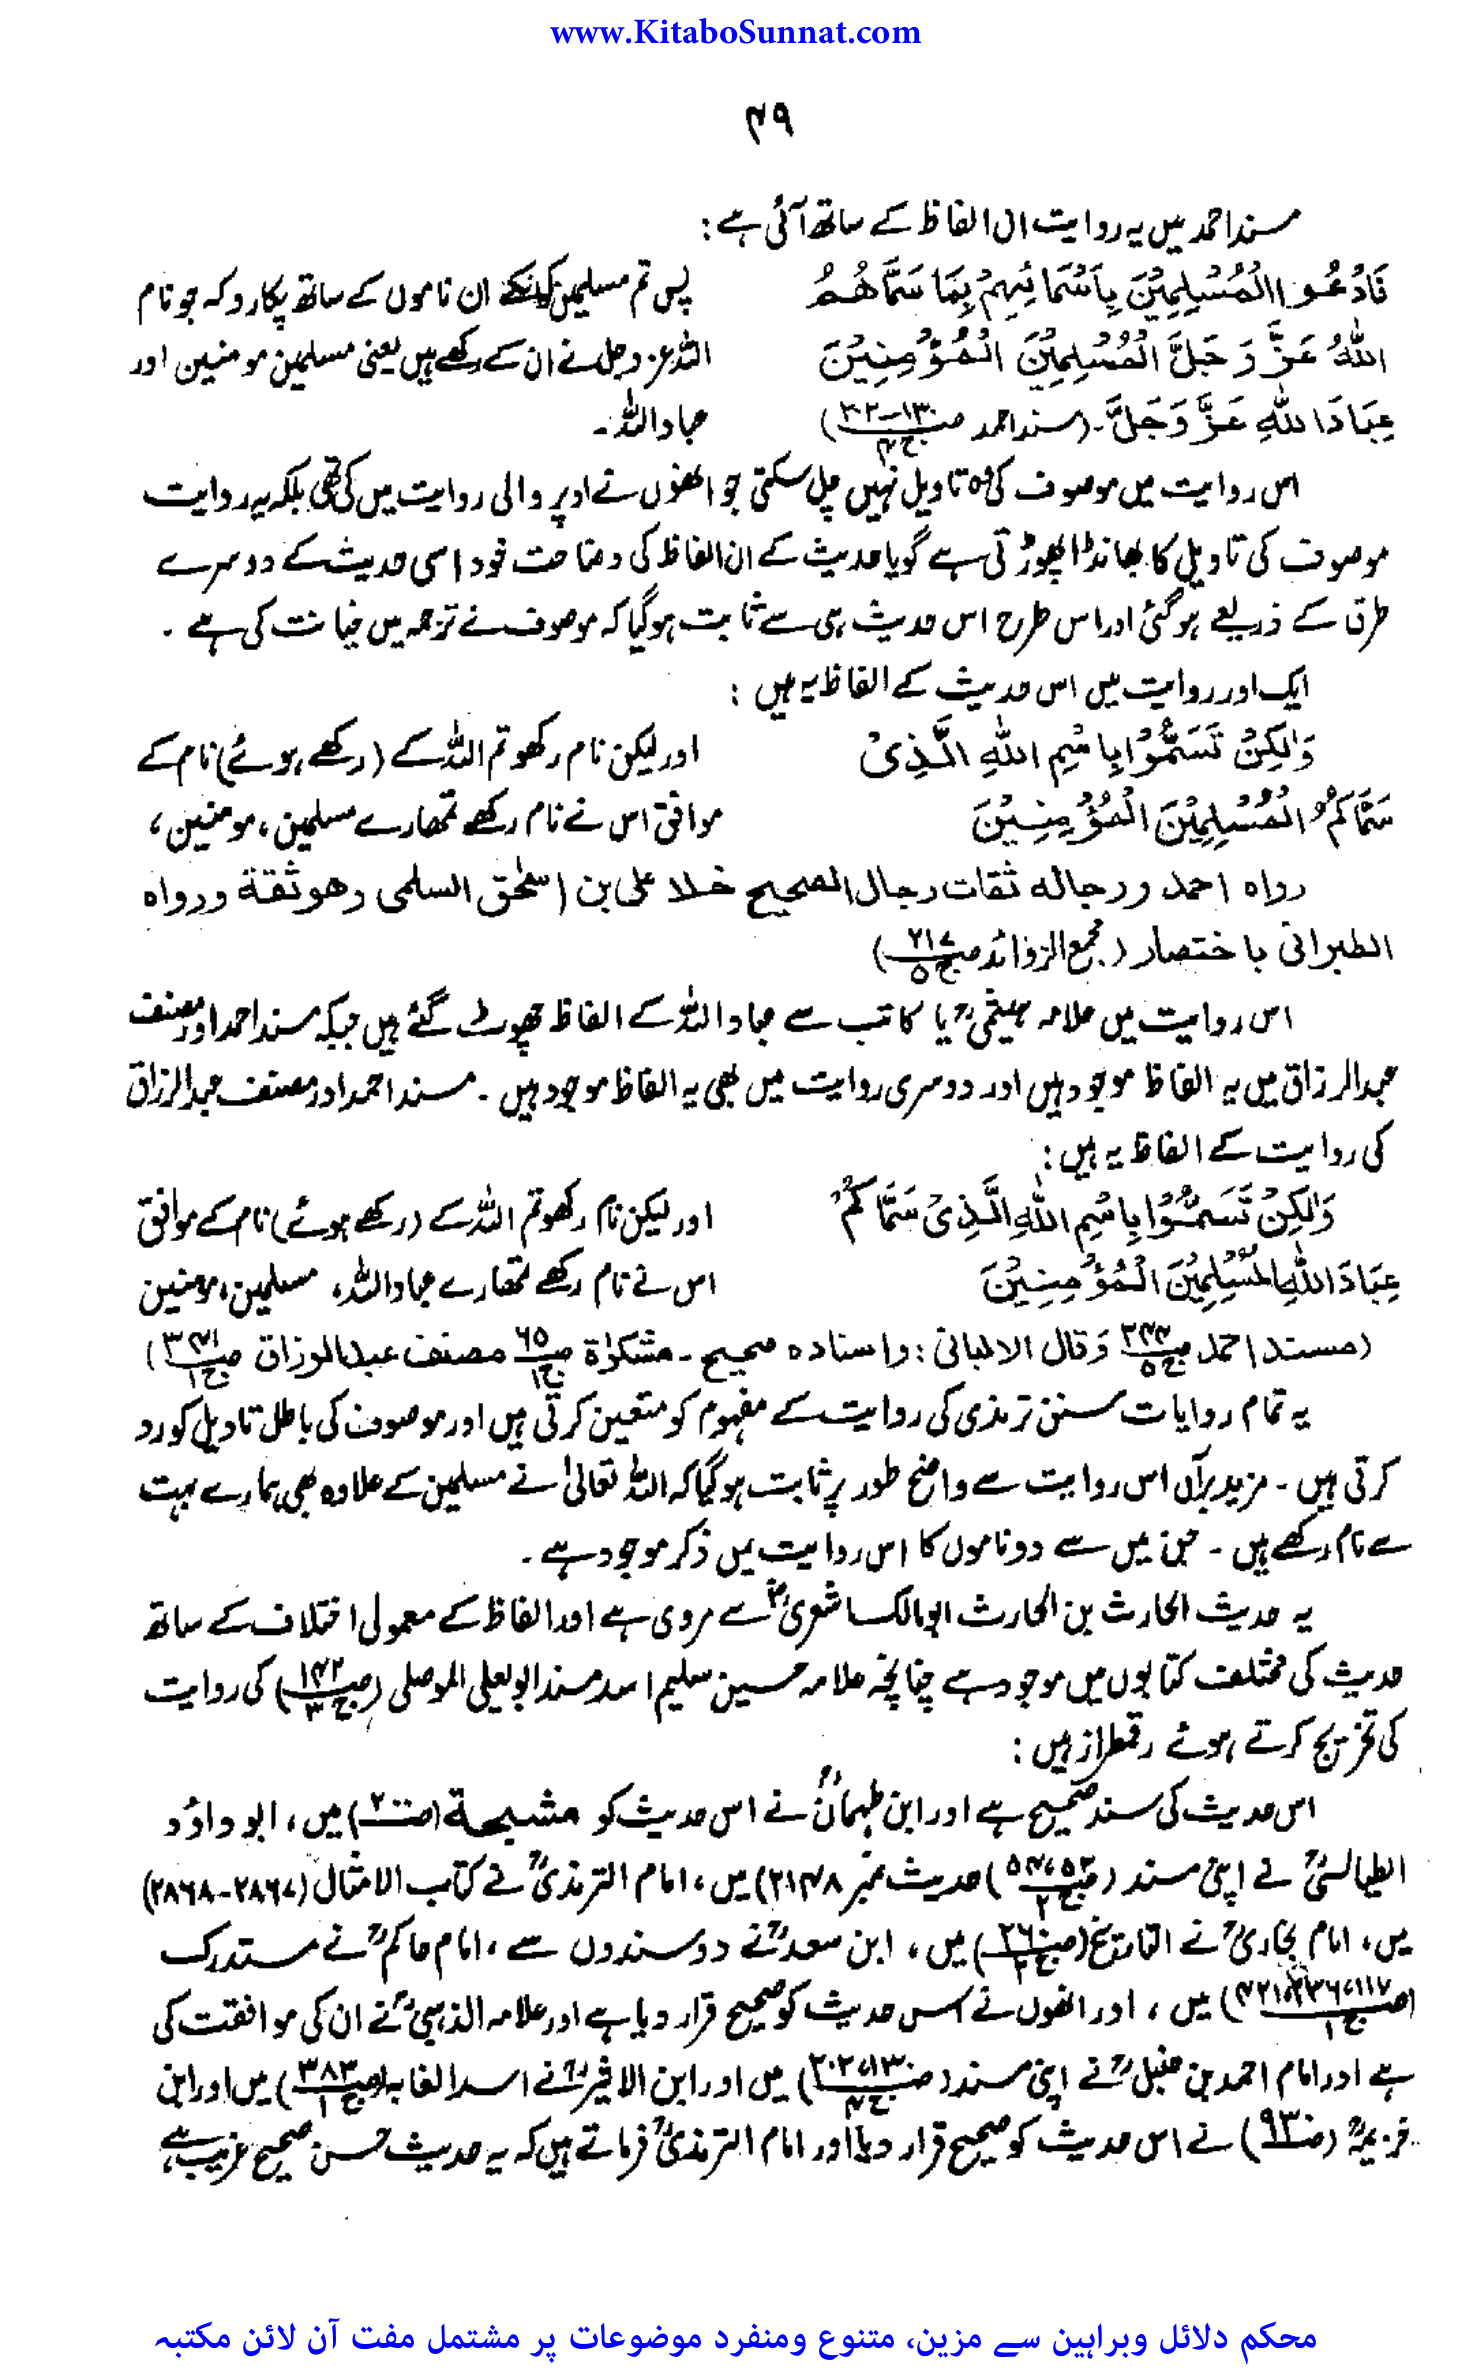 www.KitaboSunnat.com
۴۹
مسند احمد میں یہ روایت ان الفاظ کے ساتھ آئی ہے:
فَادْعُوا الْمُسْلِمِيْنَ بِاَسْمَائِهِمْ بِمَا سَمَّاهُمُ پس تم مسلمین کو انکے ان ناموں کے ساتھ پکارو کہ جو نام
اللهُ عَزَّ وَ جَلَّ الْمُسْلِمِيْنَ الْمُؤْمِنِيْنَ اللہ عزوجل نے ان کے رکھے ہیں یعنی مسلمین مومنین اور
عِبَادَ اللهِ عَزَّ وَجَلَّ۔ (مسند احمد ص ۱۳۰-۲۰۲ ج ۴) عباد اللہ۔
اس روایت میں موصوف کی وہ تاویل نہیں چل سکتی جو انھوں نے اوپر والی روایت میں کی تھی بلکہ یہ روایت
موصوف کی تاویل کا بھانڈا پھوڑتی ہے گویا حدیث کے ان الفاظ کی وضاحت خود اسی حدیث کے دوسرے
طرق کے ذریعے ہو گئی اور اس طرح اس حدیث ہی سے ثابت ہو گیا کہ موصوف نے ترجمہ میں خیانت کی ہے ۔
ایک اور روایت میں اس حدیث کے الفاظ یہ ہیں :
وَلٰكِنْ تَسَمُّوْا بِاسْمِ اللهِ الَّذِىْ اور لیکن نام رکھو تم اللہ کے (رکھے ہوئے) نام کے
سَمَّاكُمُ الْمُسْلِمِيْنَ الْمُؤْمِنِيْنَ موافق اس نے نام رکھے تمھارے مسلمین، مومنین،
رواه احمد ورجاله ثقات رجال الصحيح خلا على بن اسحٰق السلمى وهو ثقة ورواه
الطبرانى باختصار (مجمع الزوائد ص ۲۱۷ ج ۵)
اس روایت میں علامہ ہیثمیؒ یا کاتب سے عباد اللہ کے الفاظ چھوٹ گئے ہیں جبکہ مسند احمد اور مصنف
عبدالرزاق میں یہ الفاظ موجود ہیں اور دوسری روایت میں بھی یہ الفاظ موجود ہیں ۔ مسند احمد اور مصنف عبدالرزاق
کی روایت کے الفاظ یہ ہیں :
وَلٰكِنْ تَسَمُّوْا بِاسْمِ اللهِ الَّذِىْ سَمَّاكُمْ اور لیکن نام رکھو تم اللہ کے (رکھے ہوئے) نام کے موافق
عِبَادَ اللهِ الْمُسْلِمِيْنَ الْمُؤْمِنِيْنَ اس نے نام رکھے تمھارے عباد اللہ، مسلمین، مومنین
(مسند احمد ص ۳۴۴ ج ۵ وَقال الالبانى : واسناده صحيح ۔ مشكوٰة ص ۶۵ ج ۱ مصنف عبدالرزاق ص ۳۴۱ ج ۱)
یہ تمام روایات سنن ترمذی کی روایت کے مفہوم کو متعین کرتی ہیں اور موصوف کی باطل تاویل کو رد
کرتی ہیں ۔ مزید برآں اس روایت سے واضح طور پر ثابت ہو گیا کہ اللہ تعالیٰ نے مسلمین کے علاوہ بھی ہمارے بہت
سے نام رکھے ہیں ۔ جن میں سے دو ناموں کا اس روایت میں ذکر موجود ہے ۔
یہ حدیث الحارث بن الحارث ابو مالک اشعریؓ سے مروی ہے اور الفاظ کے معمولی اختلاف کے ساتھ
حدیث کی مختلف کتابوں میں موجود ہے چنانچہ علامہ حسین سلیم اسد مسند ابو یعلی الموصلی (ص ۱۴۲ ج ۳) کی روایت
کی تخریج کرتے ہوئے رقمطراز ہیں :
اس حدیث کی سند صحیح ہے اور ابن طہمانؒ نے اس حدیث کو مشيخة (ص ۲۰۰) میں ، ابو داؤد
الطیالسیؒ نے اپنی مسند ( ج ۲ ) حدیث نمبر ۲۱۴۸) میں ، امام الترمذیؒ نے کتاب الامثال (۲۸۶۷-۲۸۶۸)
میں، امام بخاریؒ نے التاریخ (ص ۲۶۰ ج ۲) میں ، ابن سعدؒ نے دو سندوں سے ، امام حاکمؒ نے مستدرک
(ص ۱۱۷، ۲۳۶، ۴۲۱ ج ۱) میں ، اور انھوں نے اس حدیث کو صحیح قرار دیا ہے اور علامہ الذہبیؒ نے ان کی موافقت کی
ہے اور امام احمد بن حنبلؒ نے اپنی مسند (ص ۱۳۰، ۲۰۲ ج ۴) میں اور ابن الاثیرؒ نے اسد الغابہ (ص ۳۸۳ ج ۱) میں اور ابن
خزیمہؒ (ص ۹۳) نے اس حدیث کو صحیح قرار دیا اور امام الترمذیؒ فرماتے ہیں کہ یہ حدیث حسن صحیح غریب ہے
محکم دلائل وبراہین سے مزین، متنوع ومنفرد موضوعات پر مشتمل مفت آن لائن مکتبہ